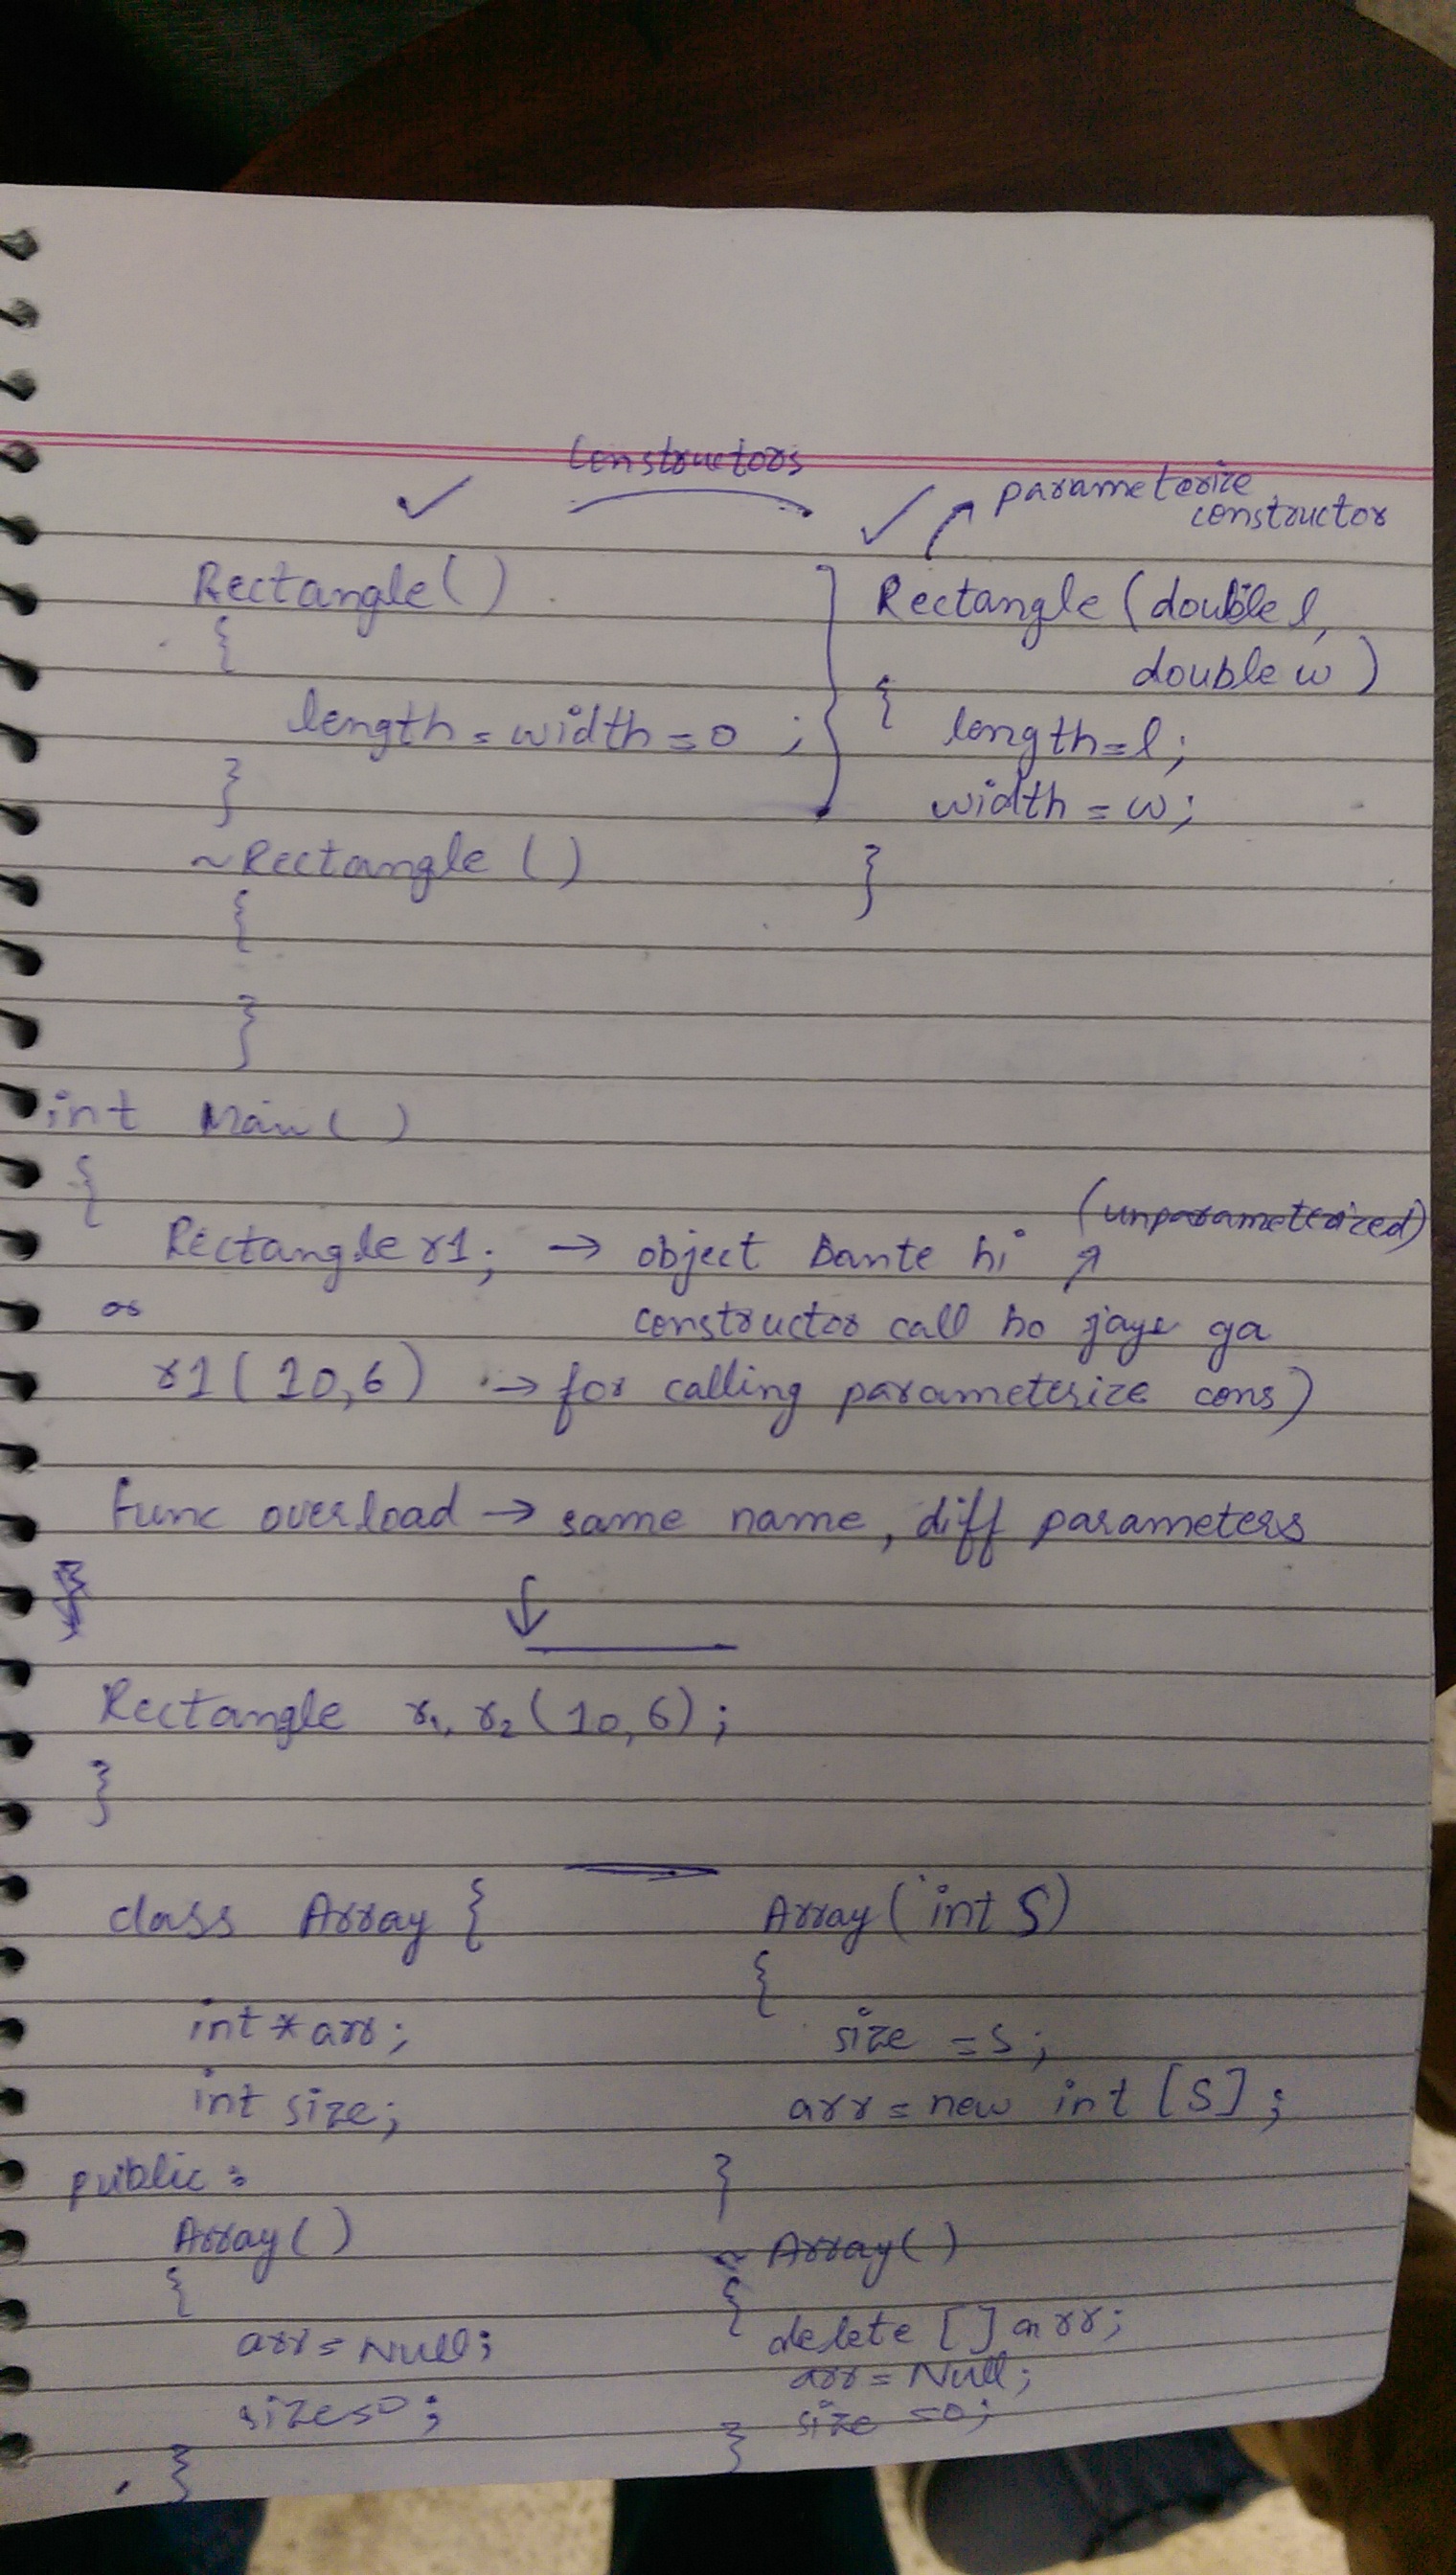 Constructors
parameterize
constructor
Rectangle()
{
length = width = 0 ;
}
~Rectangle ()
{
}
Rectangle (double l,
double w )
{
length = l;
width = w;
}
int Main()
{
Rectangle r1; → object bante hi (unparameterized)
or constructor call ho jaye ga
r1(10,6) → for calling parameterize cons)
Func overload → same name, diff parameters
Rectangle r1, r2(10,6);
}
class Array {
int * arr;
int size;
public :
Array()
{
arr = Null;
size=0;
}
Array(int S)
{
size = S;
arr = new int [S] ;
}
~ Array()
{
delete [] arr;
arr = Null;
size =0;
}